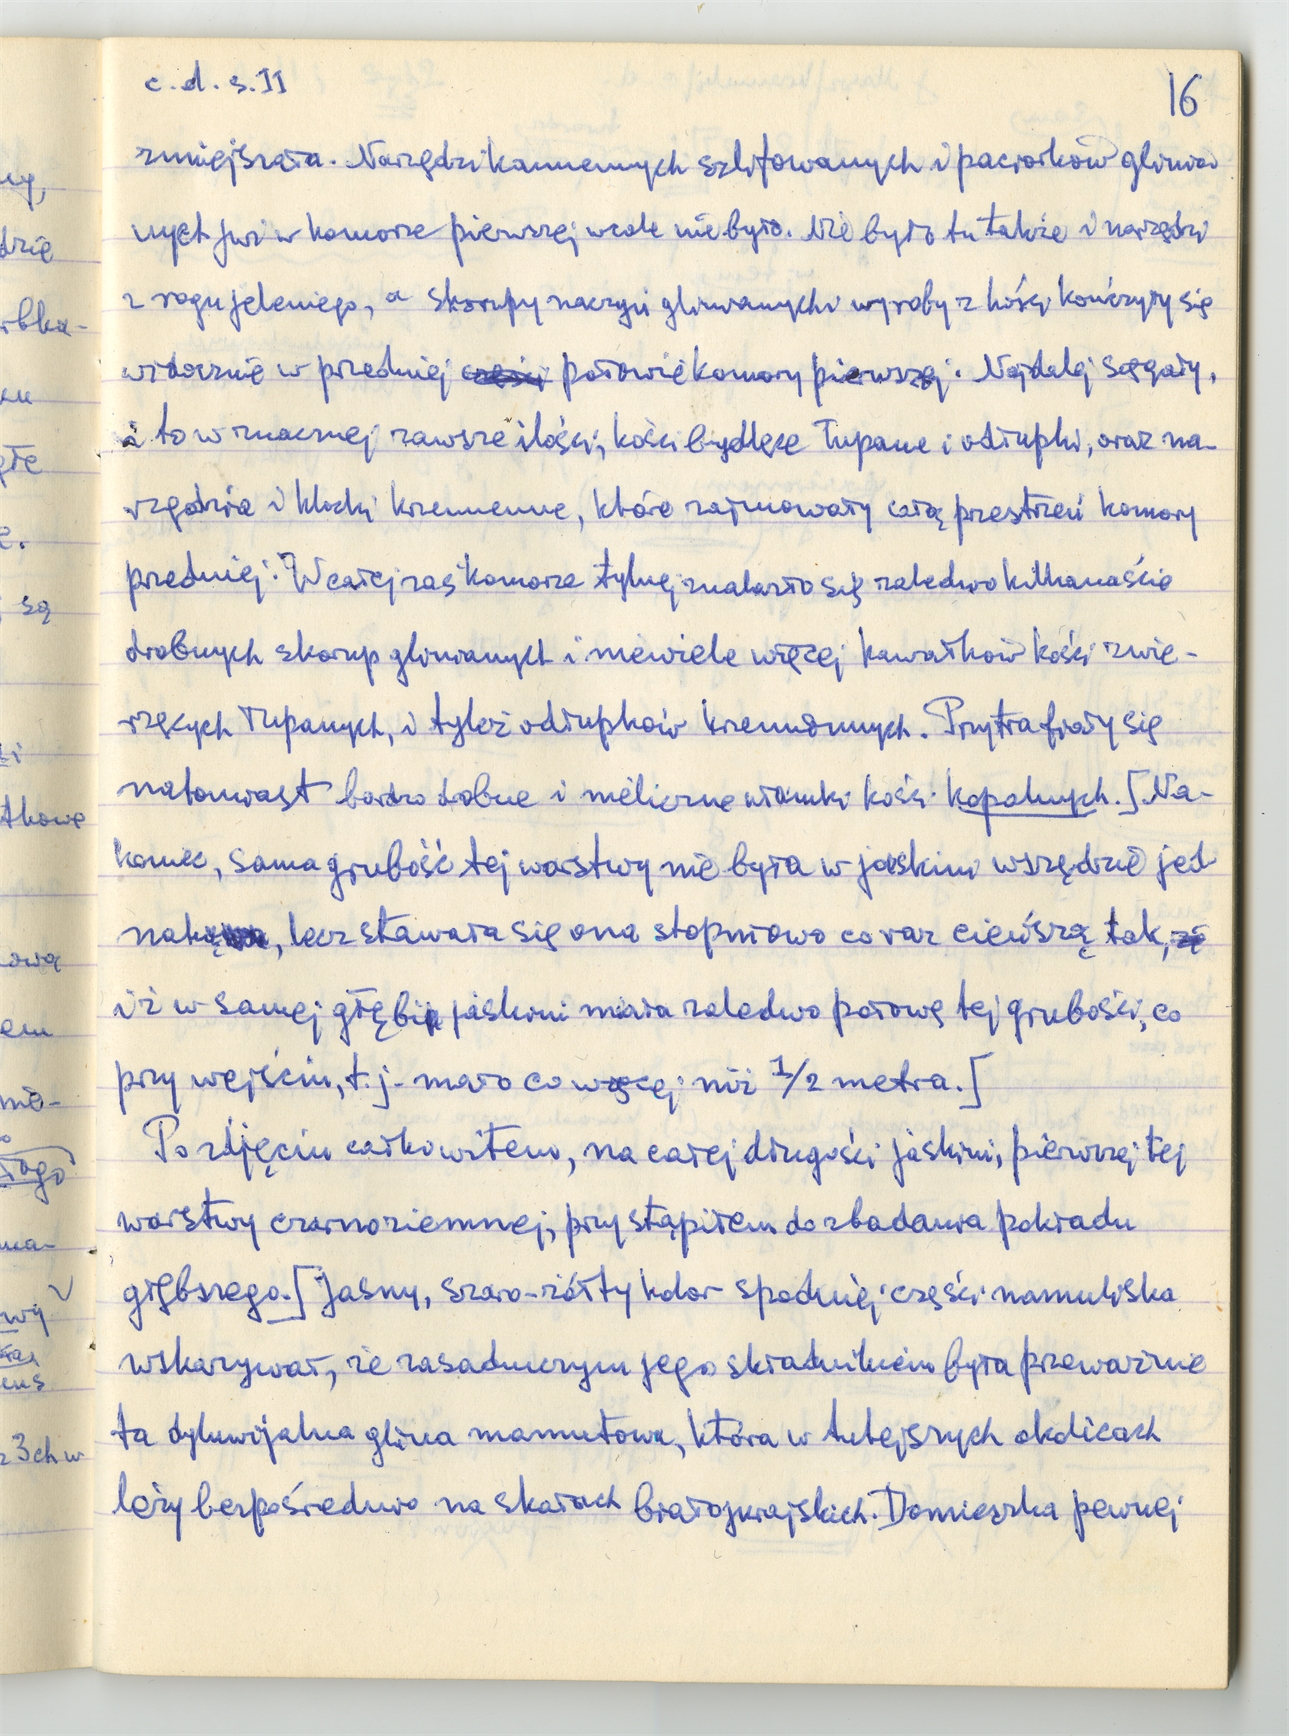 c.d.s.II
16
zmniejszała. Narzędzi kamiennych szlifowanych i paciorków glinia
nych już w komorze pierwszej wcale nie było. Nie było tu także i narzędzi
z rogu jeleniego, a skorupy naczyń glinianych i wyroby z kości kończyły się
widocznie w przedniej części połowie komory pierwszej. Najdalej sięgały,
i to w znacznej zawsze ilości, kości bydlęce łupane i odłupki, oraz na-
rzędzia i klocki krzemienne, które zajmowały całą przestrzeń komory
przedniej. W całej zaś komorze tylnej znalazło się zaledwo kilkanaście
drobnych skorup glinianych i niewiele więcej kawałków kości zwie-
rzęcych łupanych, i tyleż odłupków krzemiennych. Przytrafiały się
natomiast bardzo drobne i nieliczne ułamki kości kopalnych. [Na-
koniec, sama grubość tej warstwy nie była w jaskini wszędzie jed
naką, lecz stawała się ona stopniowo coraz cieńszą tak, że
iż w samej głębi jaskini miała zaledwo połowę tej grubości, co
przy wejściu, t.j. mało co więcej niż 1/2 metra.]
Po zdjęciu całkowitem, na całej długości jaskini, pierwszej tej
warstwy czarnoziemnej, przystąpiłem do zbadania pokładu
głębszego. [Jasny, szaro-żółty kolor spodniej części namuliska
wskazywał, że zasadniczym jego składnikiem była przeważnie
ta dyluwijalna glina mamutowa, która w tutejszych okolicach
leży bezpośrednio na skałach białojurajskich. Domieszka pewnej